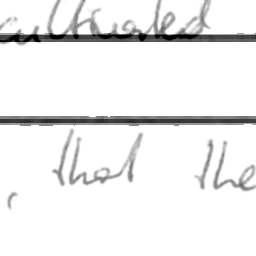 cultivated
, that the